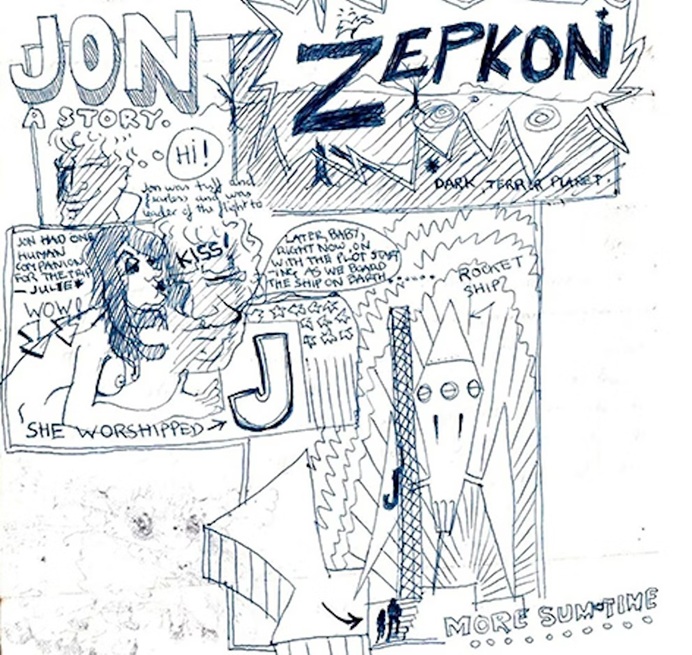 JON
A STORY.
ZEPKON
DARK TERROR PLANET.
Hi!
Jon was tuff and
fearless and was
leader of the flight to
JON HAD ONE
HUMAN
COMPANION
FOR THE TRIP
— JULIE*
WOW!
KISS!
LATER, BABY,
RIGHT NOW, ON
WITH THE PLOT START
-ING AS WE BOARD
THE SHIP ON EARTH
ROCKET
SHIP?
J
SHE WORSHIPPED
J
MORE SUM-TIME